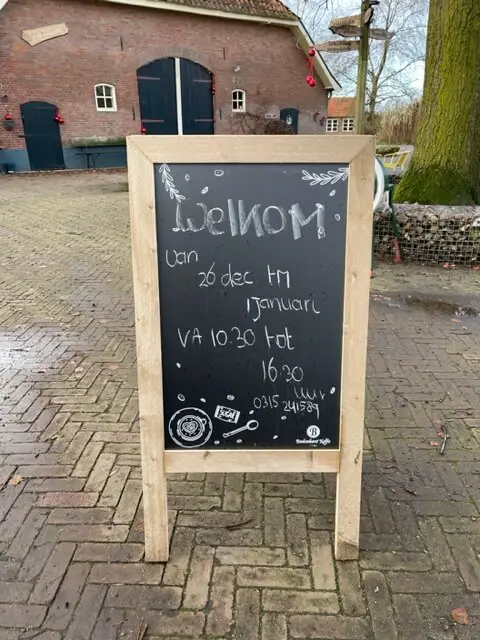 Welkom
van
26 dec tm
1 januari
VA 10.30 tot
16.30
uur
0315 241589
B